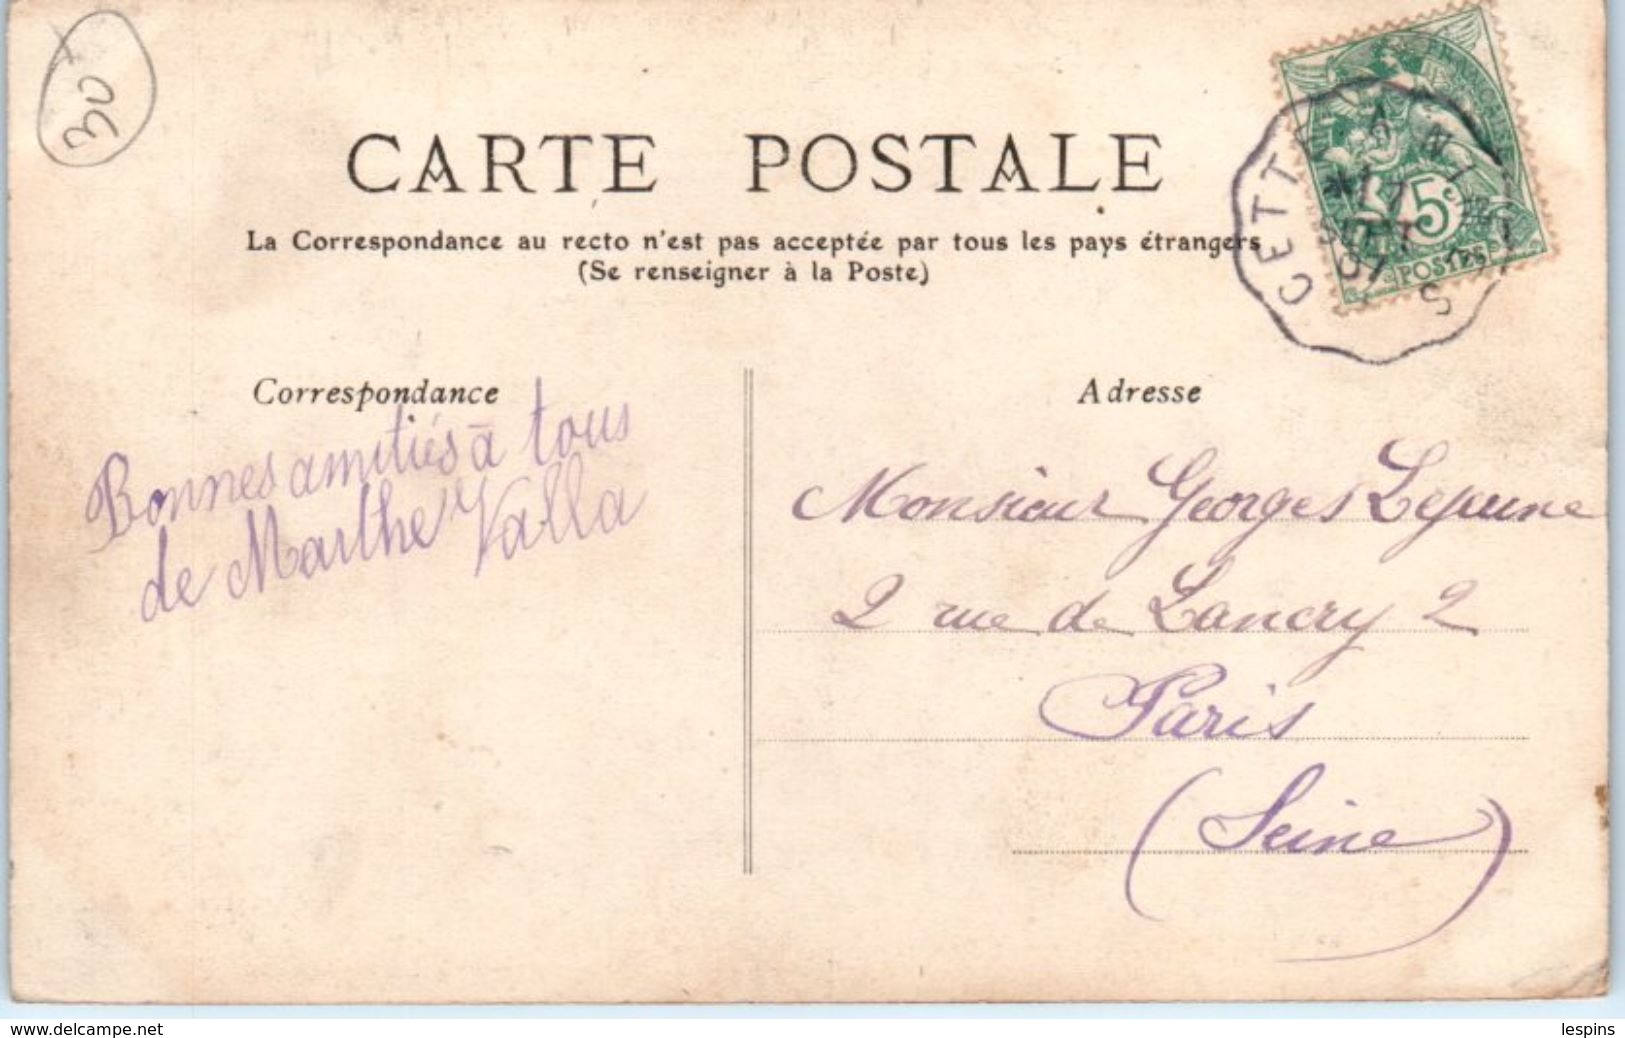 30
CARTE POSTALE
La Correspondance au recto n'est pas acceptée par tous les pays étrangers
(Se renseigner à la Poste)
CETTE A
5c
POSTES
07
Correspondance
Bonnes amitiés à tous
de Marthe Valla
Adresse
Monsieur Georges Lejeune
2 rue de Lancry 2
Paris
(Seine)
www.delcampe.net
lespins